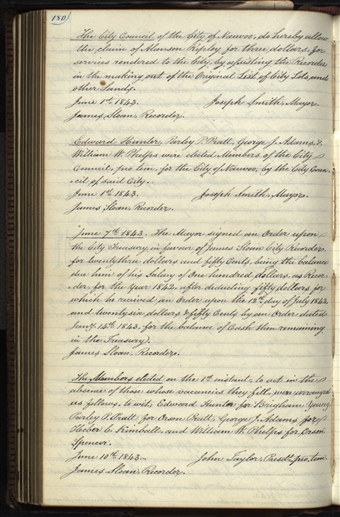 180
The City Council of the City of Nauvoo, do hereby allow
the claim of Alanson Ripley for three dollars, for
services rendered to the City by assisting the Recorder
in the making out of the Original List of City Lots, and
other Lands.
June 1st 1843. Joseph Smith, Mayor.
James Sloan, Recorder.
Edward Hunter, Parley P. Pratt, George J. Adams, &
William W. Phelps were elected Members of the City
Council, pro tem, for the City of Nauvoo, by the City Coun-
cil of said City.
June 1st 1843. Joseph Smith, Mayor.
James Sloan, Recorder.
June 7th 1843. The Mayor signed an Order upon
the City Treasury in favour of James Sloan City Recorder,
for twenty three dollars and fifty Cents, being the balance
due him of his Salary of One hundred dollars, as Recor-
der for the Year 1842, after deducting fifty dollars for
which he received an Order upon the 12th day of July 1842,
and twenty six dollars & fifty Cents by an Order dated
Jany. 14th 1843, for the balance of Cash then remaining
in the Treasury.
James Sloan, Recorder.
The Members elected on the 1st instant, to act in the
absence of those whose vacancies they fill, were arranged
as follows, to wit, Edward Hunter for Brigham Young
Parley P. Pratt for Orson Pratt, George J. Adams for
Heber C. Kimball and William W. Phelps for Orson
Spencer.
June 10th 1843. John Taylor, Presdt. pro, tem.
James Sloan, Recorder.